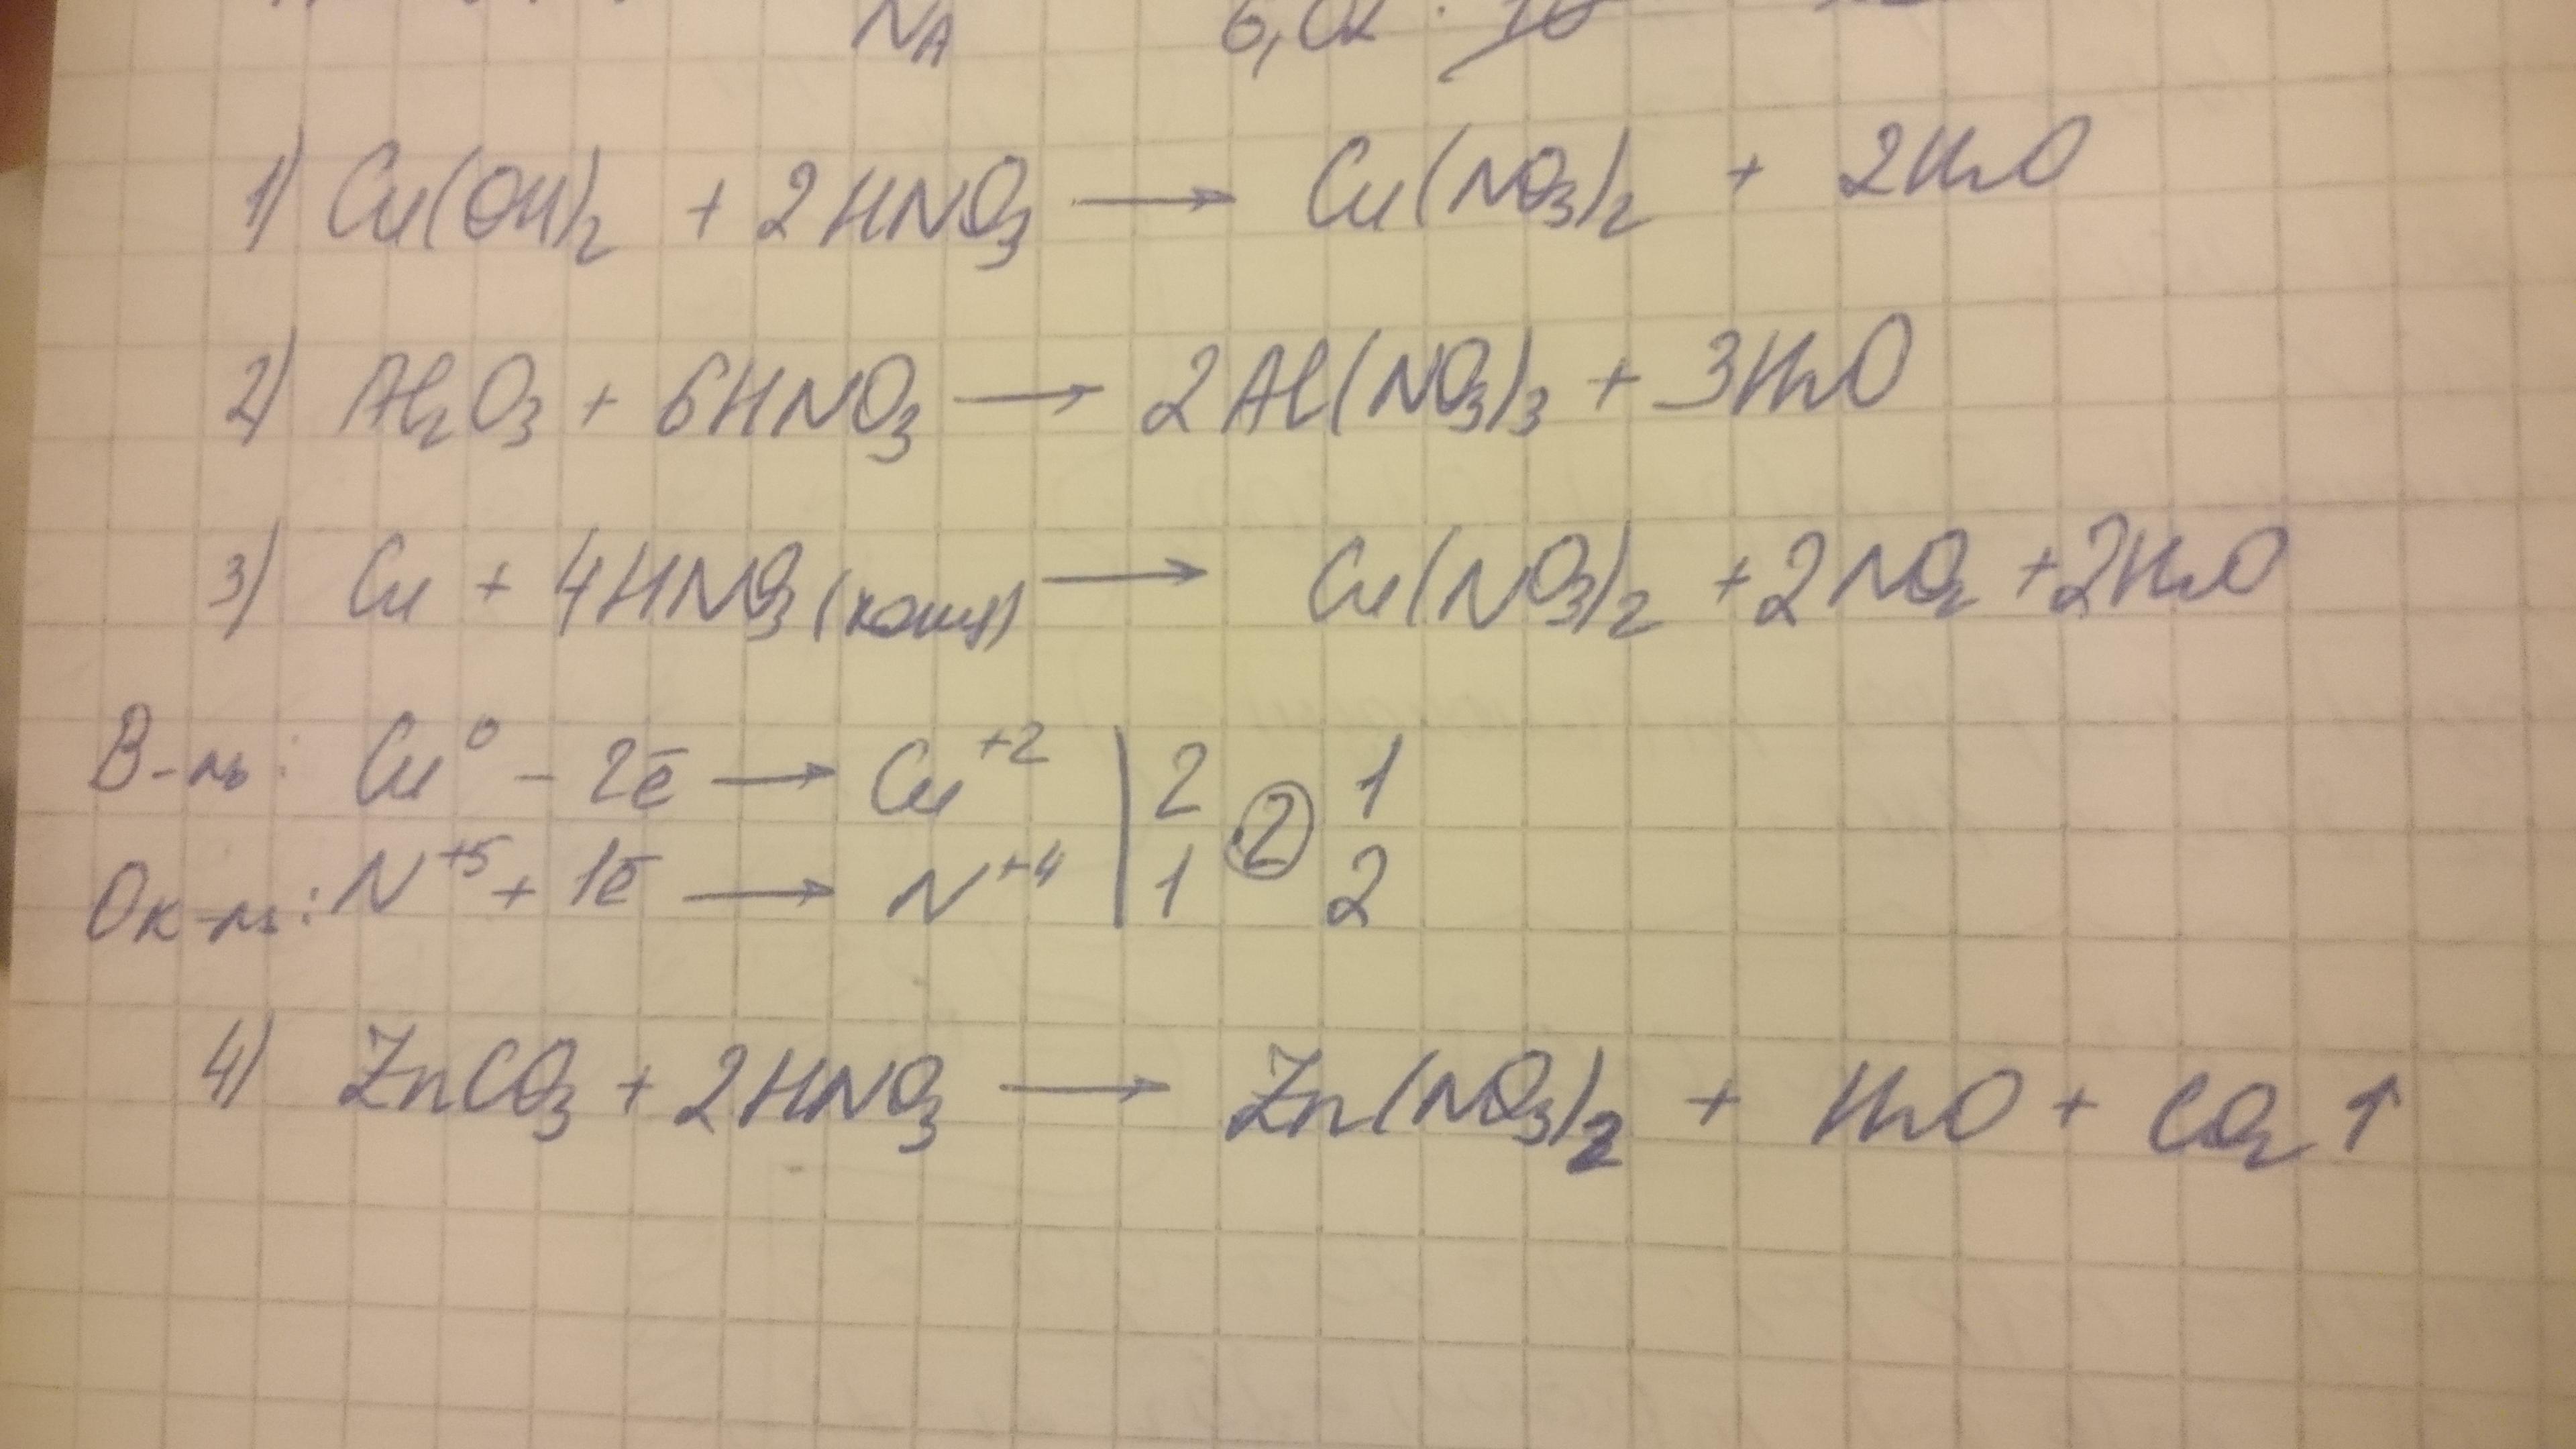 N_A 6,02 · 10
1) Cu(OH)₂ + 2HNO₃ → Cu(NO₃)₂ + 2H₂O
2) Al₂O₃ + 6HNO₃ → 2Al(NO₃)₃ + 3H₂O
3) Cu + 4HNO₃ (конц) → Cu(NO₃)₂ + 2NO₂ + 2H₂O
В-ль: Cu⁰ - 2ē → Cu⁺² | 2 ② 1
Ок-ль: N⁺⁵ + 1ē → N⁺⁴ | 1 2
4) ZnCO₃ + 2HNO₃ → Zn(NO₃)₂ + H₂O + CO₂↑